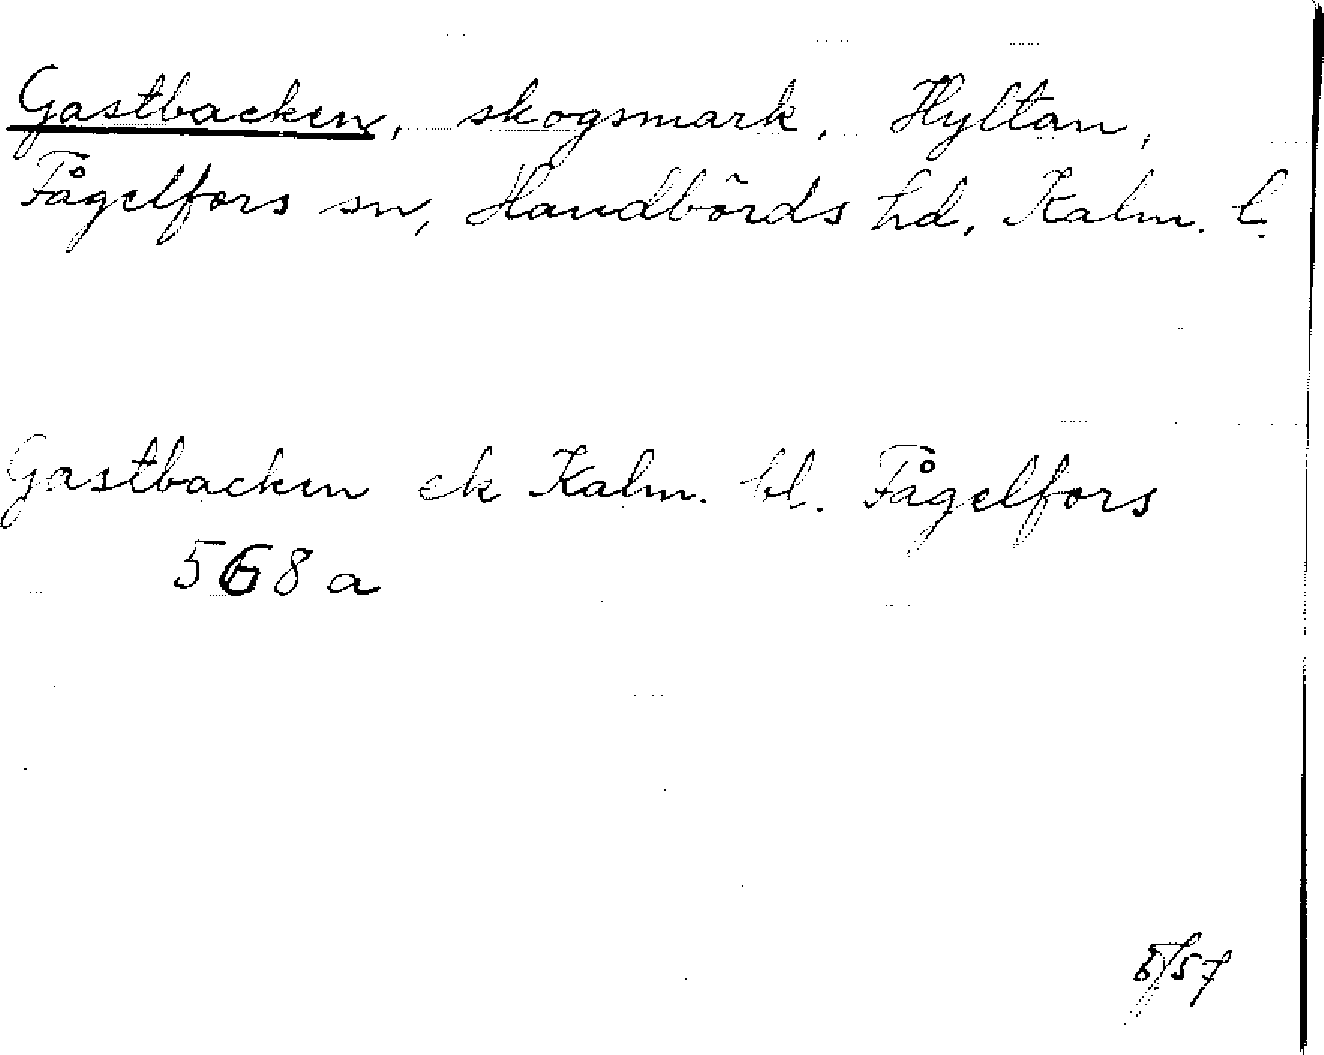 Gastbacken, skogsmark, Hyltan,
Fågelfors sn, Handbörds hd, Kalm. l.
Gastbacken ek Kalm. bl. Fågelfors
568 a